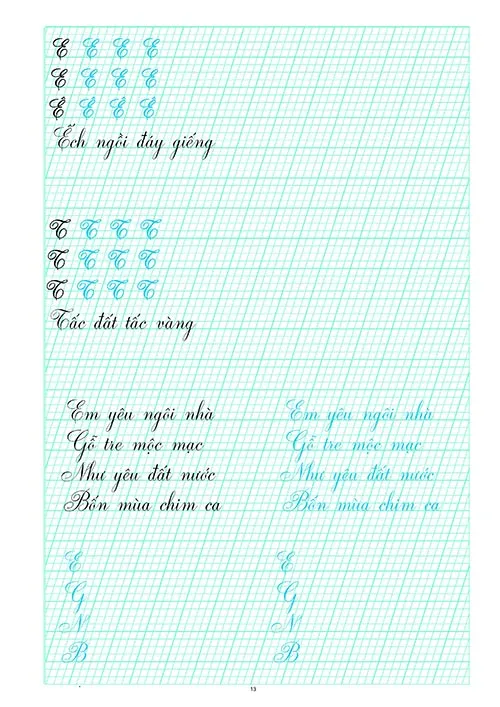 E E E E
E E E E
Ê Ê Ê Ê
Ếch ngồi đáy giếng
T T T T
T T T T
T T T T
Tấc đất tấc vàng
Em yêu ngôi nhà
Gỗ tre mộc mạc
Như yêu đất nước
Bốn mùa chim ca
Em yêu ngôi nhà
Gỗ tre mộc mạc
Như yêu đất nước
Bốn mùa chim ca
E
G
N
B
E
G
N
B
13